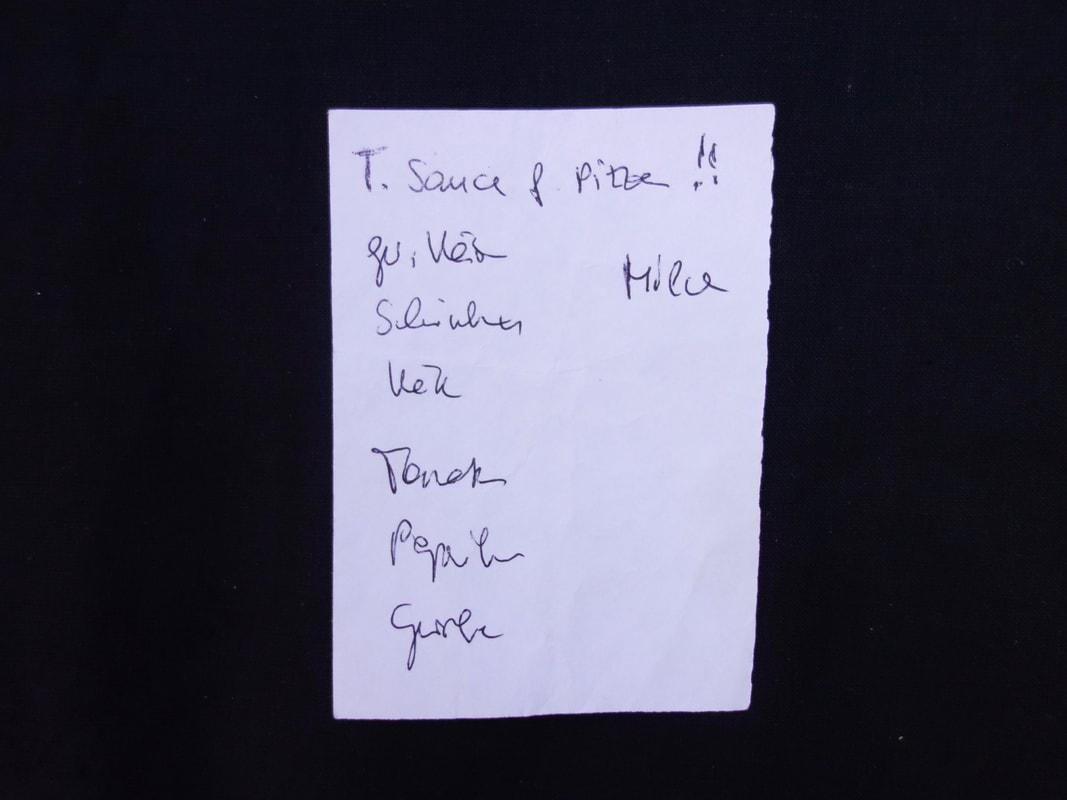 T. Sauce f. Pizza !!
Milch
Schinken
Tomaten
Paprika
Gurke